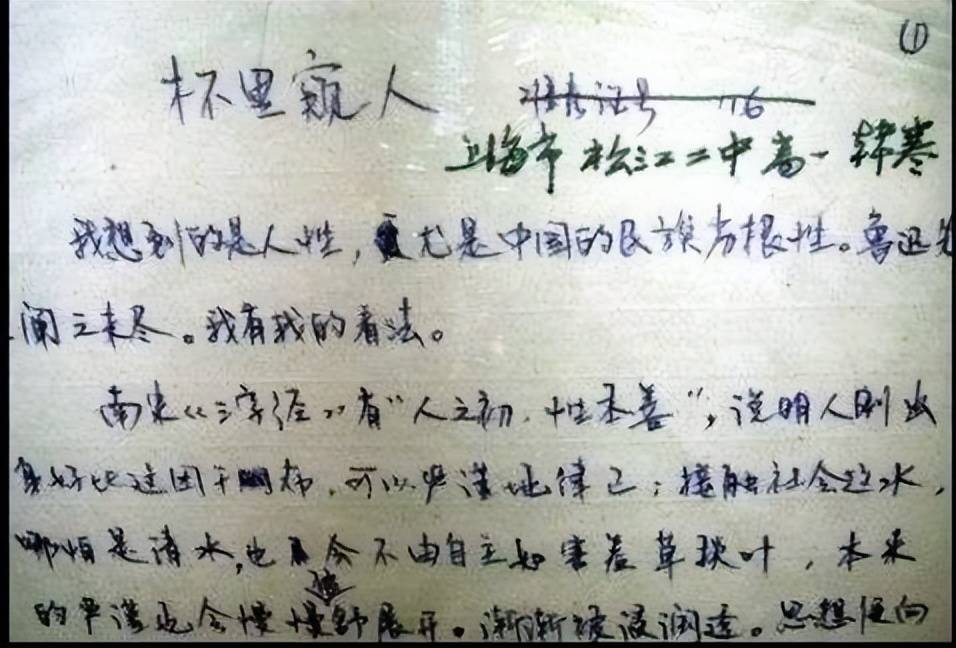 (1)
杯里窥人
准考证号 116
上海市 松江二中 高一 韩寒
我想到的是人性,尤是中国的民族劣根性。鲁迅先
阐之未尽。我有我的看法。
南宋《三字经》有“人之初,性本善”,说明人刚出
身好比这团干布,可以严谨地律己;接触社会这水,
哪怕是清水,也会不由自主如害羞草掞叶,本来
的严谨也会慢慢地舒展开。渐渐被浸润透。思想便向